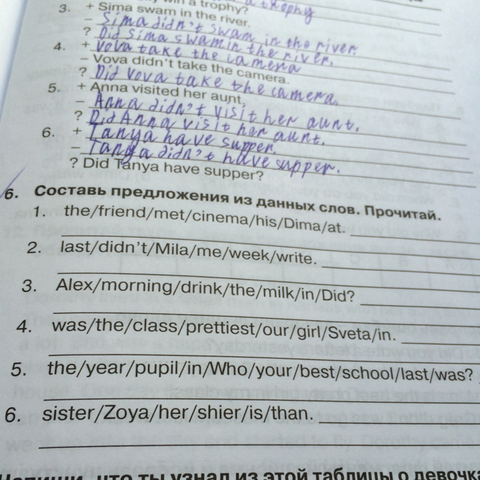 a trophy? a trophy
3. + Sima swam in the river.
– Sima didn't swam in the river
? Did Sima swam in the river.
4. + Vova take the camera
– Vova didn't take the camera.
? Did Vova take the camera.
5. + Anna visited her aunt.
– Anna didn't visit her aunt.
? Did Anna visit her aunt.
6. + Tanya have supper
– Tanya didn't have supper.
? Did Tanya have supper?
6. Составь предложения из данных слов. Прочитай.
1. the/friend/met/cinema/his/Dima/at.
2. last/didn't/Mila/me/week/write.
3. Alex/morning/drink/the/milk/in/Did?
4. was/the/class/prettiest/our/girl/Sveta/in.
5. the/year/pupil/in/Who/your/best/school/last/was?
6. sister/Zoya/her/shier/is/than.
Напиши, что ты узнал из этой таблицы о девочка